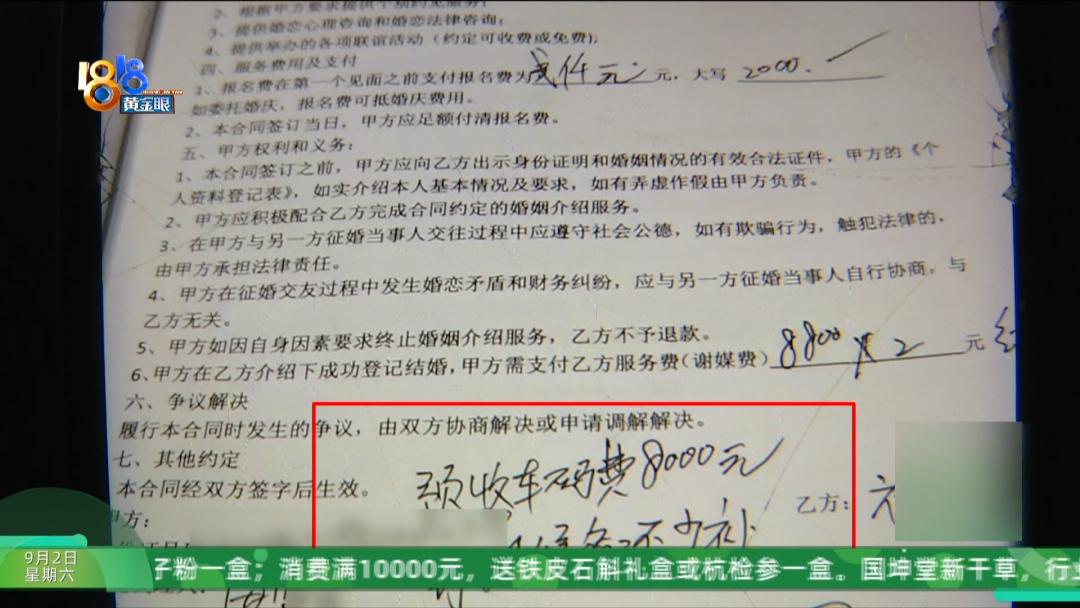 2、根据甲方要求提供个别约见服务；
3、提供婚恋心理咨询和婚恋法律咨询；
4、提供举办的各项联谊活动（约定可收费或免费);
四、服务费用及支付
1、报名费在第一个见面之前支付报名费为贰仟元元，大写 2000.
如委托婚庆，报名费可抵婚庆费用。
2、本合同签订当日，甲方应足额付清报名费。
五、甲方权利和义务：
1、本合同签订之前，甲方应向乙方出示身份证明和婚姻情况的有效合法证件，甲方的《个
人资料登记表》，如实介绍本人基本情况及要求，如有弄虚作假由甲方负责。
2、甲方应积极配合乙方完成合同约定的婚姻介绍服务。
3、在甲方与另一方征婚当事人交往过程中应遵守社会公德，如有欺骗行为，触犯法律的，
由甲方承担法律责任。
4、甲方在征婚交友过程中发生婚恋矛盾和财务纠纷，应与另一方征婚当事人自行协商，与
乙方无关。
5、甲方如因自身因素要求终止婚姻介绍服务，乙方不予退款。
6、甲方在乙方介绍下成功登记结婚，甲方需支付乙方服务费（谢媒费）8800×2元
六、争议解决
履行本合同时发生的争议，由双方协商解决或申请调解解决。
七、其他约定
预收车码费8000元
本合同经双方签字后生效。
甲方：
乙方：
不少补
1818
黄金眼
9月2日
星期六
子粉一盒；消费满10000元，送铁皮石斛礼盒或杭检参一盒。国坤堂新干草，行业